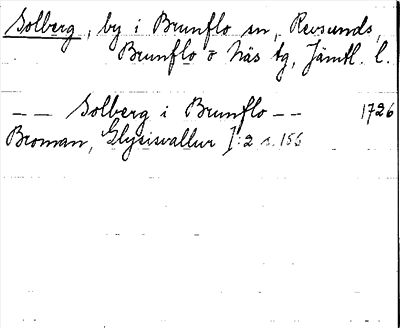 Solberg, by i Brunflo sn, Revsunds,
Brunflo o Näs tg, Jämtl. l.
– – Solberg i Brunflo – – 1726
Broman, Glysisvallur I:2 s. 156